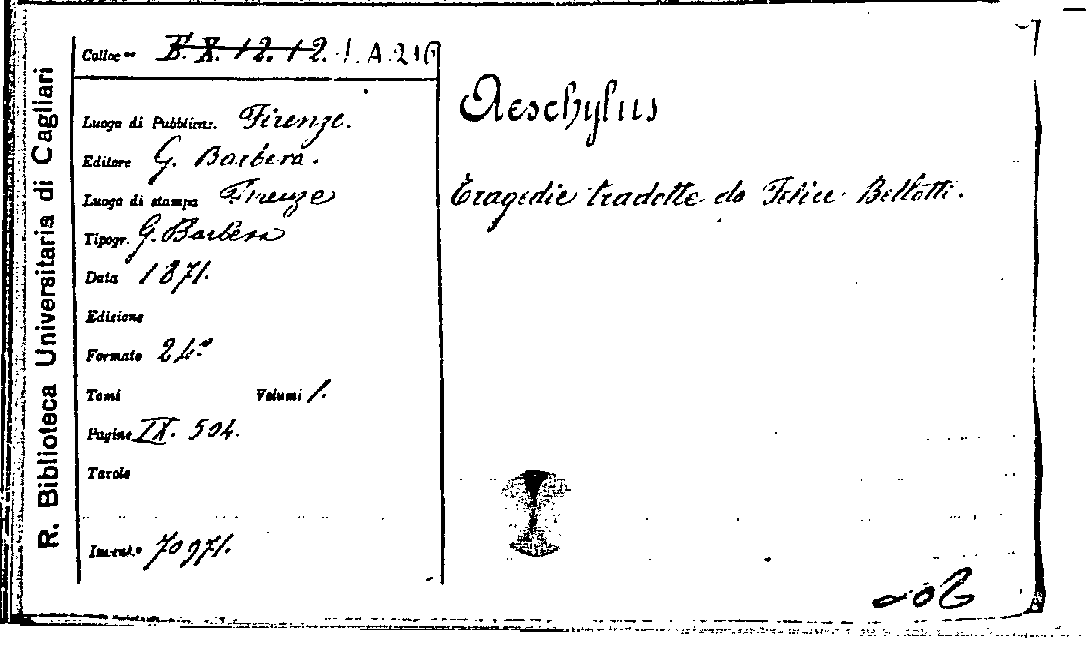 R. Biblioteca Universitaria di Cagliari
Colloc. E.X.12.12. 1.A.210
Luogo di Pubblicaz. Firenze.
Editore G. Barbèra.
Luogo di stampa Firenze
Tipogr. G. Barbèra
Data 1871.
Edizione
Formato 24.°
Tomi Volumi 1.
Pagine IX. 504.
Tavole
Invent.° 70971.
Aeschylus
Tragedie tradotte da Felice Bellotti.